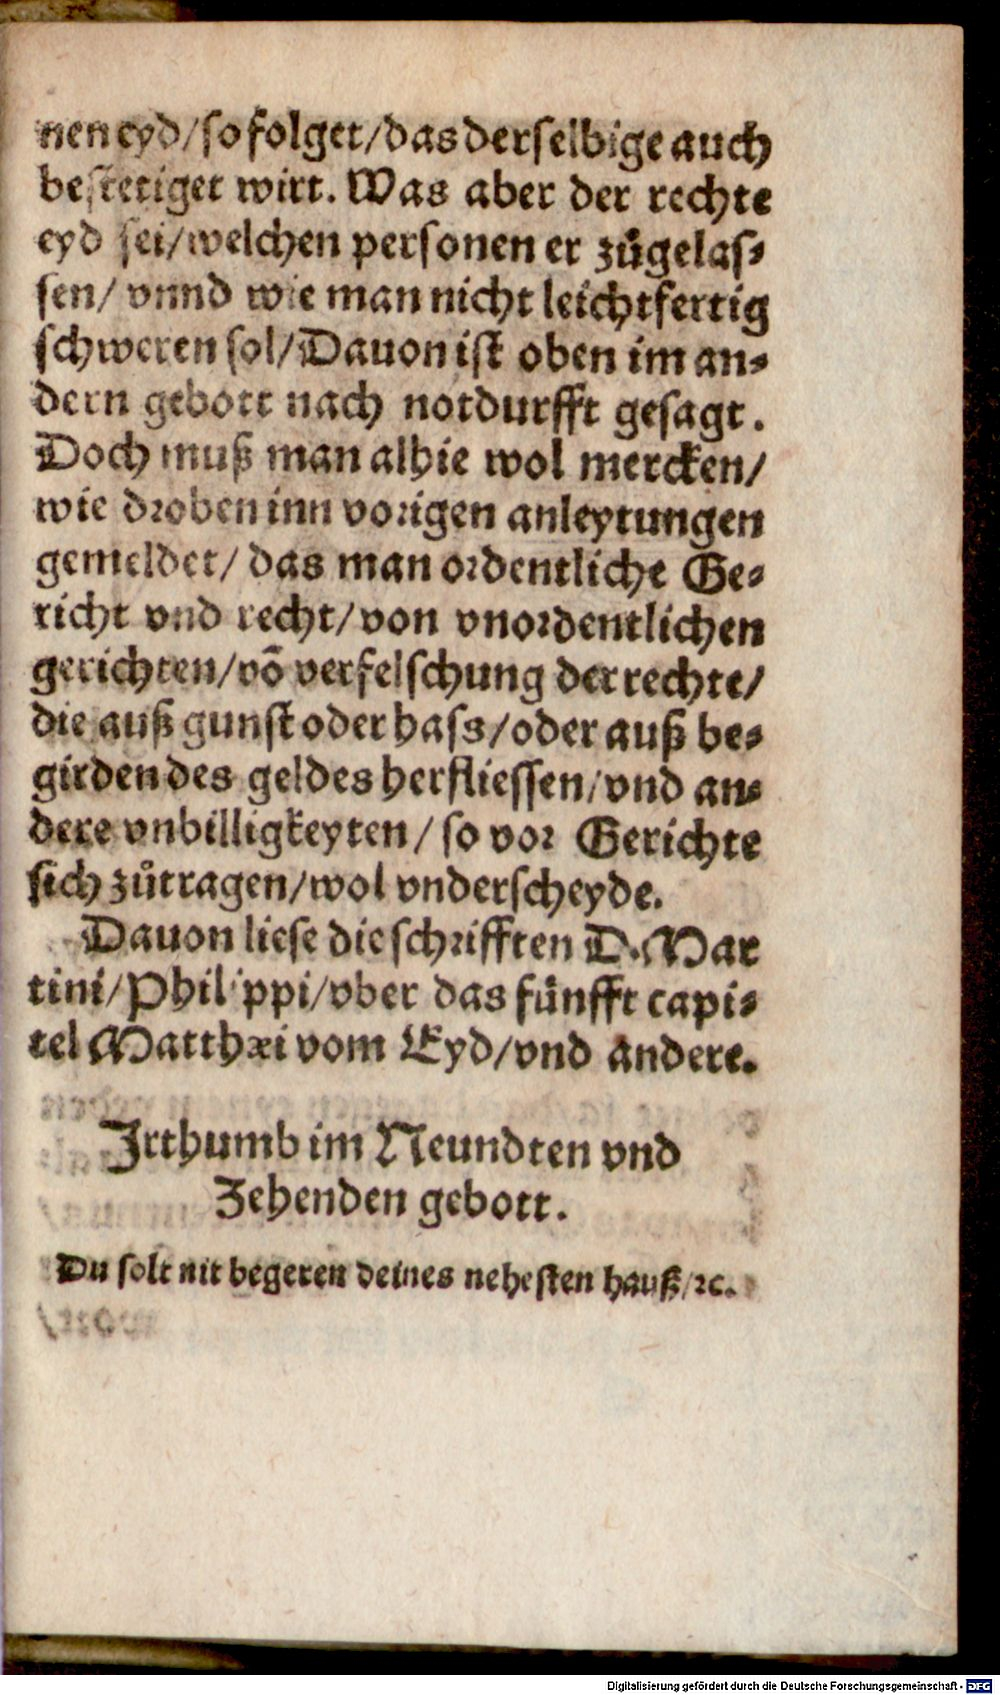 nen eyd/so folget/das derselbige auch
bestetiget wirt. Was aber der rechte
eyd sei/welchen personen er zůgelas⸗
sen/ vnnd wie man nicht leichtfertig
schweren sol/Dauon ist oben im an⸗
dern gebott nach notdurfft gesagt.
Doch muß man alhie wol mercken/
wie droben inn vorigen anleytungen
gemeldet/ das man ordentliche Ge⸗
richt vnd recht/von vnordentlichen
gerichten/võ verfelschung der rechte/
die auß gunst oder hass/oder auß be⸗
girden des geldes herfliessen/vnd an⸗
dere vnbilligkeyten/ so vor Gerichte
sich zůtragen/wol vnderscheyde.
Dauon liese die schrifften D. Mar
tini/Philippi/vber das fünfft capi⸗
tel Matthæi vom Eyd/vnd andere.
Irthumb im Neundten vnd
Zehenden gebott.
Du solt nit begeren deines nehesten hauß/ꝛc.
Digitalisierung gefördert durch die Deutsche Forschungsgemeinschaft - DFG